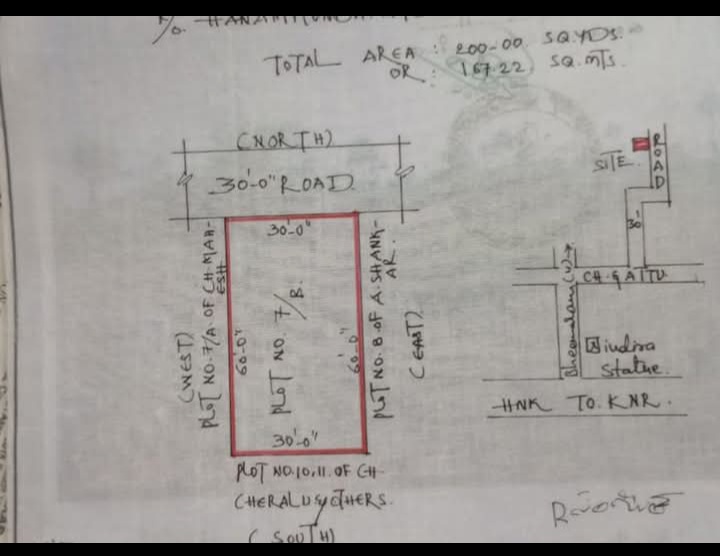 R/o. HANAMKONDA
TOTAL AREA : 200-00 SQ.YDS.
OR : 167.22 SQ.MTS.
(NORTH)
30'-0" ROAD
30'-0"
(WEST)
PLOT NO. 7/A. OF CH. MAH-
ESH
60'-0"
PLOT NO. 7/B.
60'-0"
PLOT NO. 8. OF A. SHANK-
AR.
(EAST)
30'-0"
PLOT NO. 10, 11. OF CH-
CHERALU & OTHERS.
(SOUTH)
SITE.
ROAD
30'
CH. GAITU.
Bheemaram (V) →
indira
Statue.
HNK TO. KNR.